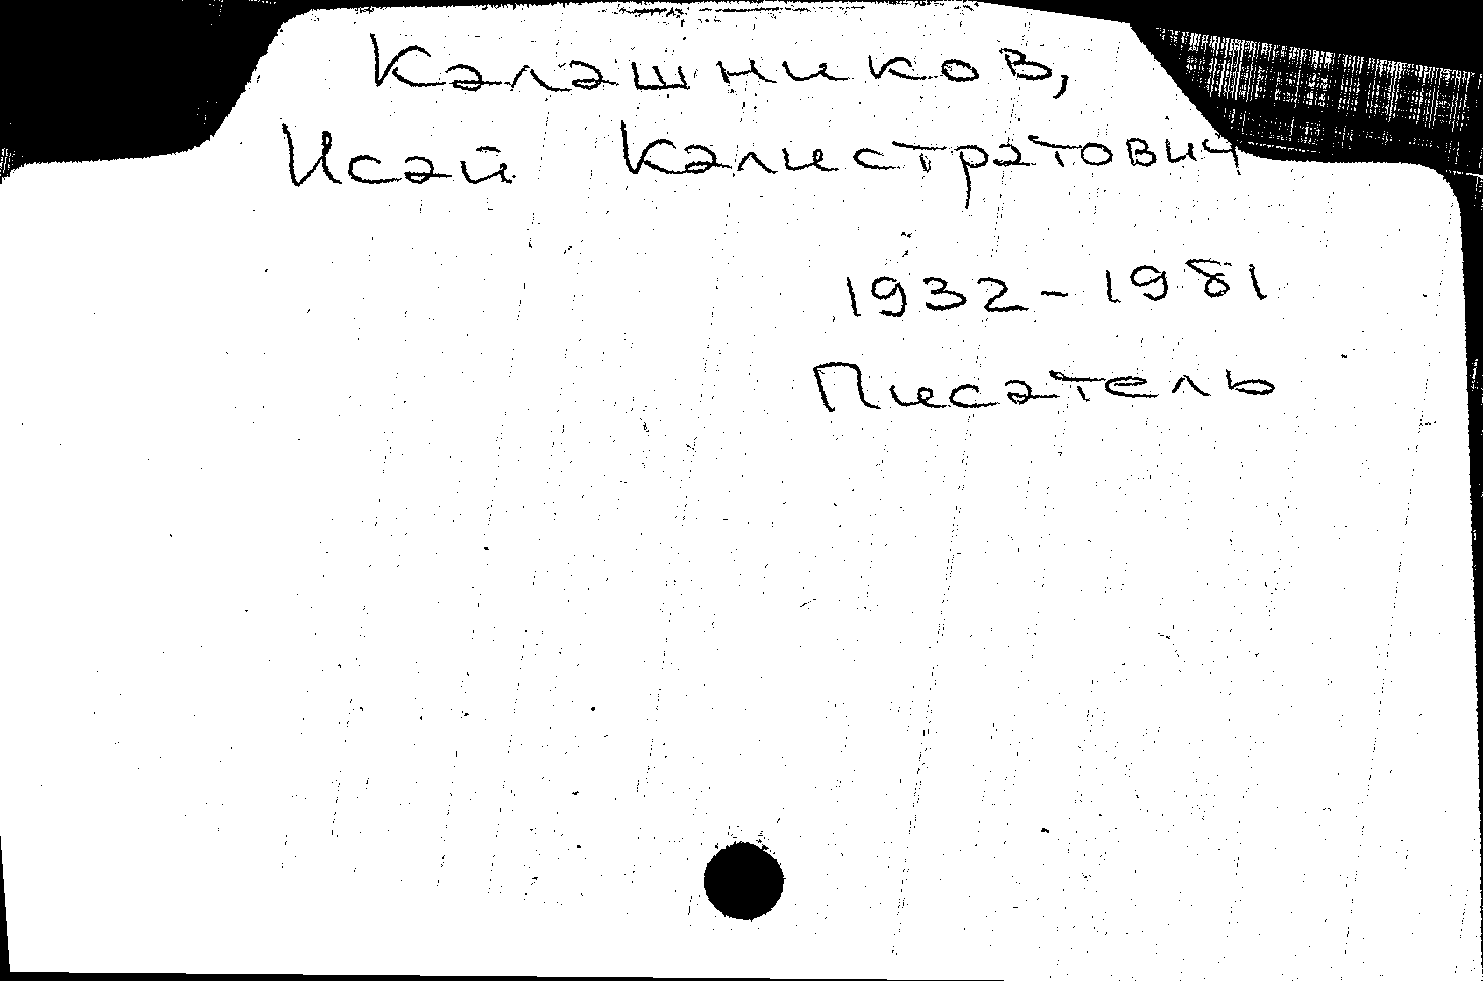 Калашников,
Исай Калистратович
1932-1981
Писатель